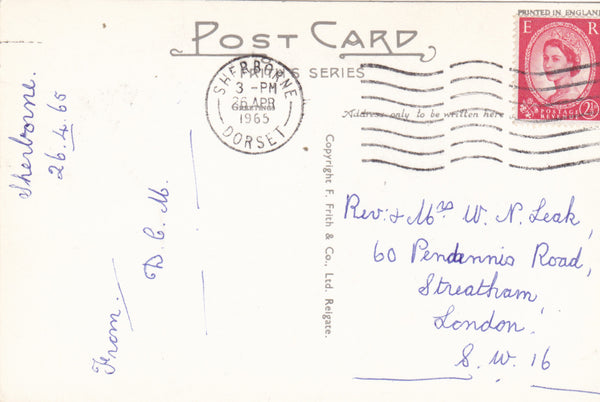 PRINTED IN ENGLAND
POST CARD
FRITH'S SERIES
SHERBORNE
3 - PM
26 APR
1965
DORSET
GREETINGS
E R
POSTAGE
REVENUE
2½
Address only to be written here
Copyright F. Frith & Co., Ltd. Reigate.
Sherborne.
26.4.65
From.
D.C.M.
Rev: & Mrs W. N. Leak,
60 Pendennis Road,
Streatham,
London.
S.W.16